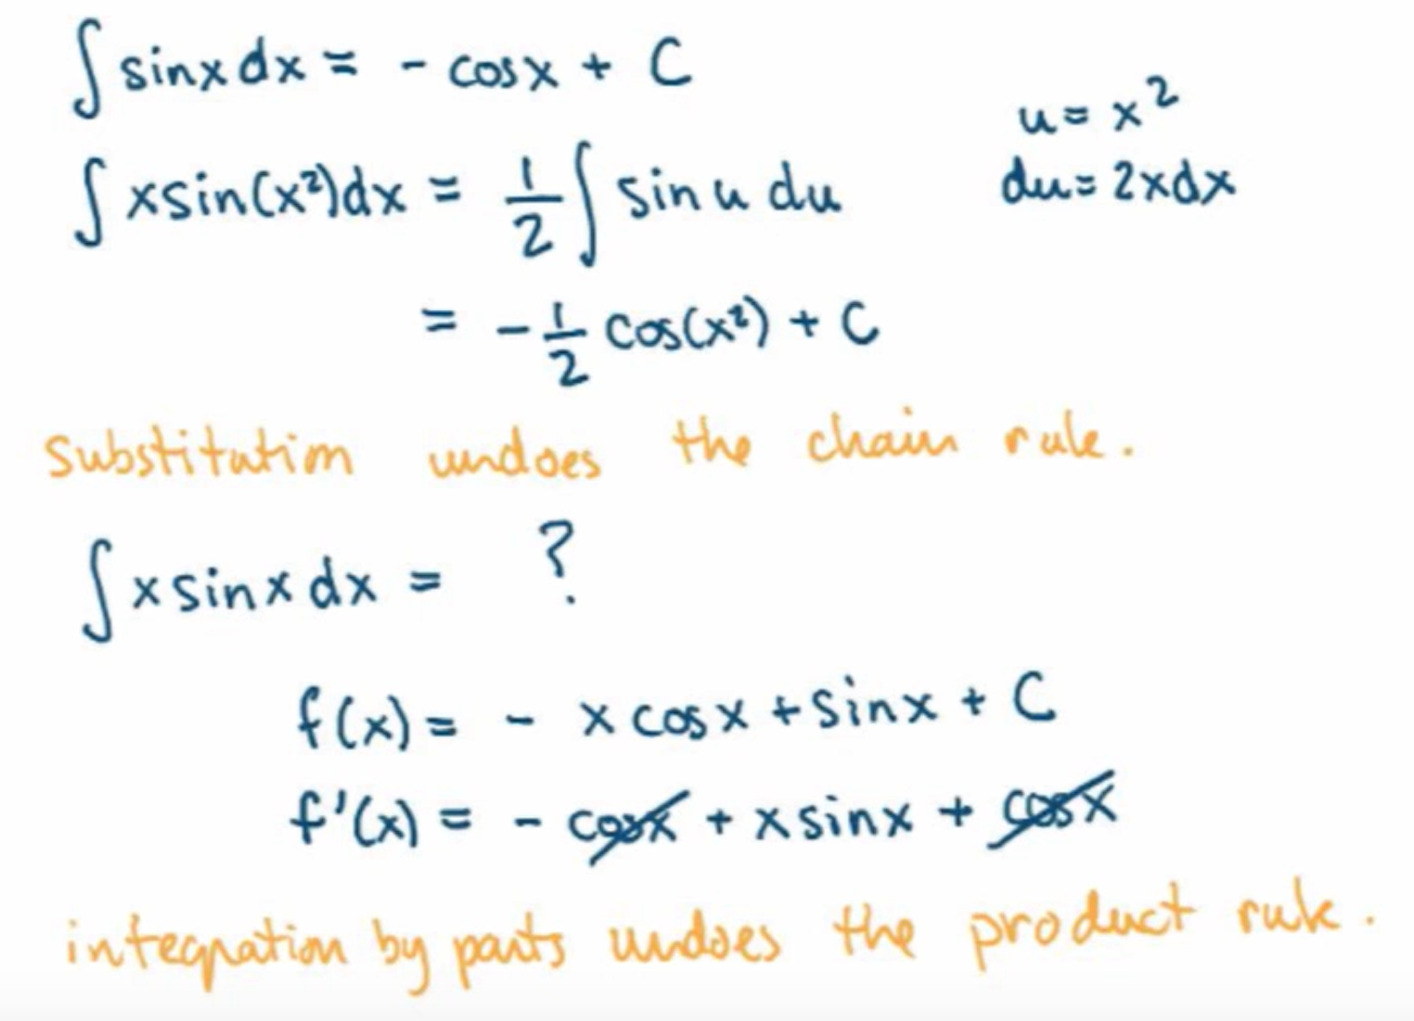 ∫ sinx dx = - cosx + C
u = x²
∫ xsin(x²)dx = 1/2 ∫ sin u du
du = 2xdx
= -1/2 cos(x²) + C
substitution undoes the chain rule.
∫ x sinx dx = ?
f(x) = - x cosx + sinx + C
f'(x) = - cosx + x sinx + cosx
integration by parts undoes the product rule.